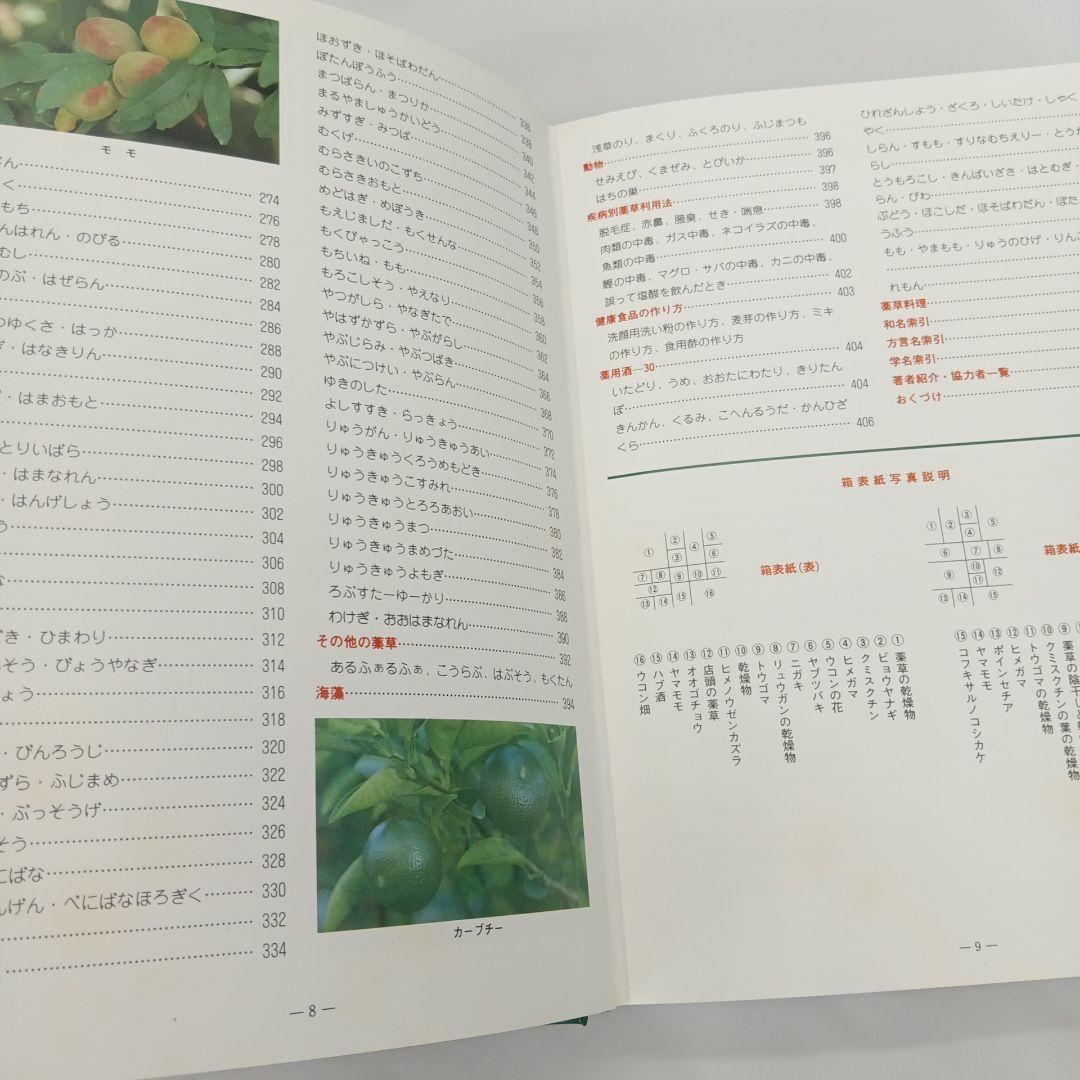 モモ
274
276
もち 278
んはれん・のびる 280
282
のぶ・はぜらん 284
286
つゆくさ・はっか 288
・はなきりん 290
292
・はまおもと 294
296
とりいばら 298
・はまなれん 300
・はんげしょう 302
304
306
308
310
ずき・ひまわり 312
そう・びょうやなぎ 314
ょう 316
318
・びんろうじ 320
ずら・ふじまめ 322
・ぶっそうげ 324
そう 326
にばな 328
んげん・べにばなほろぎく 330
332
334
ほおずき・ほそばわだん
ぼたんぼうふう 336
まつばらん・まつりか 338
まるやましゅうかいどう 340
みずすぎ・みつば 342
むくげ 344
むらさきいのこずち 346
むらさきおもと 348
めどはぎ・めぼうき 350
もえじましだ・もくせんな 352
もくびゃっこう 354
もちいね・もも 356
もろこしそう・やえなり 358
やつがしら・やなぎたで 360
やはずかずら・やぶがらし 362
やぶじらみ・やぶつばき 364
やぶにつけい・やぶらん 366
ゆきのした 368
よしすすき・らっきょう 370
りゅうがん・りゅうきゅうあい 372
りゅうきゅうくろうめもどき 374
りゅうきゅうこすみれ 376
りゅうきゅうとろろあおい 378
りゅうきゅうまつ 380
りゅうきゅうまめづた 382
りゅうきゅうよもぎ 384
ろぶすたーゆーかり 386
388
わけぎ・おおはまなれん 390
その他の薬草 392
あるふぁるふぁ、こうらぶ、はぶそう、もくたん
海藻 394
カーブチー
— 8 —
浅草のり、まくり、ふくろのり、ふじまつも
動物 396
せみえび、くまぜみ、とびいか 396
はちの巣 397
疾病別薬草利用法 398
脱毛症、赤鼻、腋臭、せき・喘息 398
肉類の中毒、ガス中毒、ネコイラズの中毒、
魚類の中毒 400
鰹の中毒、マグロ・サバの中毒、カニの中毒、
誤って塩酸を飲んだとき 402
健康食品の作り方 403
洗顔用洗い粉の作り方、麦芽の作り方、ミキ
の作り方、食用酢の作り方
薬用酒—30 404
いたどり、うめ、おおたにわたり、きりたん
ぽ 404
きんかん、くるみ、こへんるうだ・かんひざ
くら 406
ひれざんしょう・ざくろ・しいたけ・しゃく
やく
しらん・すもも・すりなむちえりー・とうが
らし
とうもろこし・きんばいざさ・はとむぎ・
らん・びわ
ぶどう・ほこしだ・ほそばわだん・ぼた
うふう
もも・やまもも・りゅうのひげ・りんご
れもん
薬草料理
和名索引
方言名索引
学名索引
著者紹介・協力者一覧
おくづけ
箱表紙写真説明
① ② ③ ④ ⑤ ⑥ ⑦ ⑧ ⑨ ⑩ ⑪ ⑫ ⑬ ⑭ ⑮ ⑯
箱表紙(表)
① ② ③ ④ ⑤ ⑥ ⑦ ⑧ ⑨ ⑩ ⑪ ⑫ ⑬ ⑭ ⑮
箱表紙
①薬草の乾燥物
②ビョウヤナギ
③クミスクチン
④ヒメガマ
⑤ウコンの花
⑥ヤブツバキ
⑦ニガキ
⑧リュウガンの乾燥物
⑨トウゴマ
⑩乾燥物
⑪ヒメノウゼンカズラ
⑫店頭の薬草
⑬オオゴチョウ
⑭ヤマモモ
⑮ハブ酒
⑯ウコン畑
⑨薬草の陰干し
⑩クミスクチンの葉の乾燥物
⑪トウゴマの乾燥物
⑫ヒメガマ
⑬ポインセチア
⑭ヤマモモ
⑮コフキサルノコシカケ
— 9 —